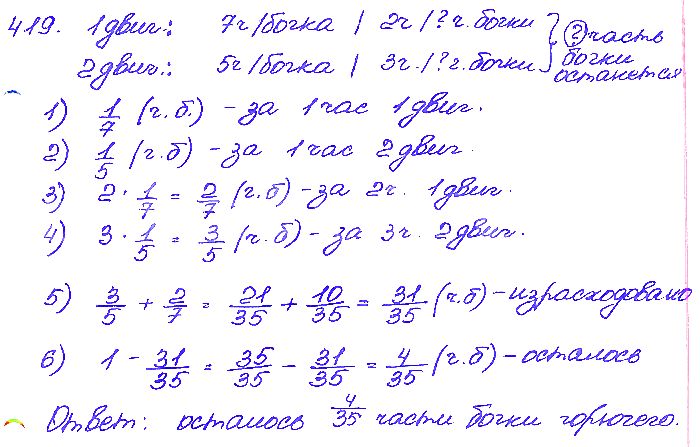 419. 1двиг.: 7ч/бочка | 2ч/?ч. бочки
2двиг.: 5ч/бочка | 3ч./?ч. бочки } ? часть бочки останется
1) 1/7 (ч.б.) - за 1час 1двиг.
2) 1/5 (ч.б) - за 1час 2двиг.
3) 2 · 1/7 = 2/7 (ч.б) - за 2ч. 1двиг.
4) 3 · 1/5 = 3/5 (ч.б) - за 3ч. 2двиг.
5) 3/5 + 2/7 = 21/35 + 10/35 = 31/35 (ч.б) - израсходовано
6) 1 - 31/35 = 35/35 - 31/35 = 4/35 (ч.б) - осталось
Ответ: осталось 4/35 части бочки горючего.